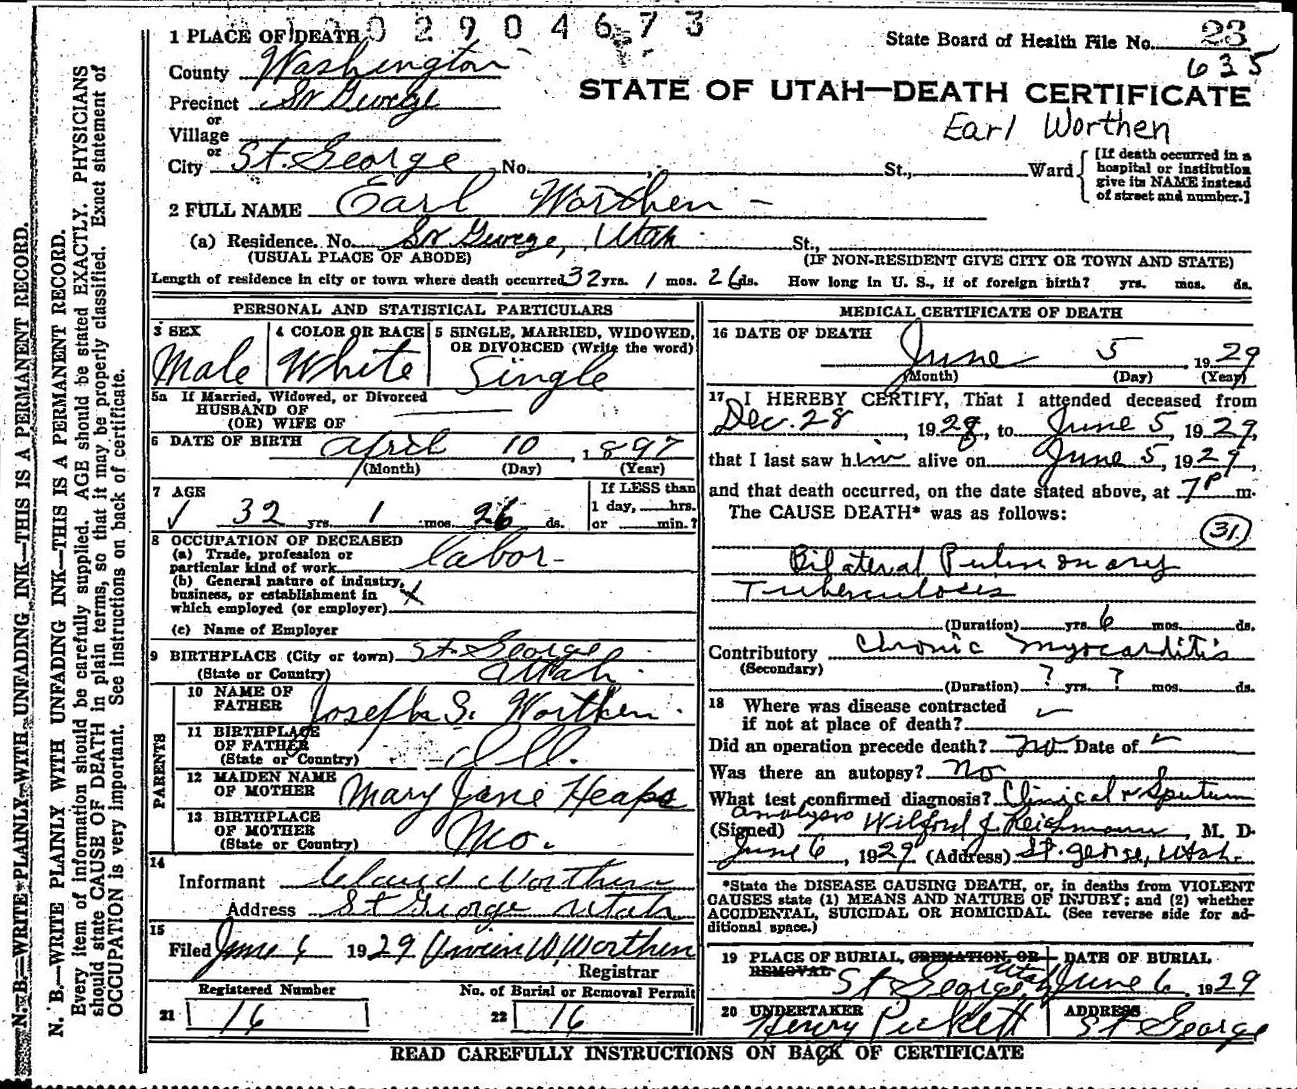 0 2 9 0 4 6 7 3
1 PLACE OF DEATH
State Board of Health File No. 23
635
County Washington
STATE OF UTAH—DEATH CERTIFICATE
Precinct St George
or
Village
Earl Worthen
or
City St. George No. St., Ward
[If death occurred in a
hospital or institution
give its NAME instead
of street and number.]
2 FULL NAME Earl Worthen -
(a) Residence. No. St George, Utah. St.,
(USUAL PLACE OF ABODE) (IF NON-RESIDENT GIVE CITY OR TOWN AND STATE)
Length of residence in city or town where death occurred 32 yrs. 1 mos. 26 ds. How long in U. S., if of foreign birth? yrs. mos. ds.
PERSONAL AND STATISTICAL PARTICULARS
3 SEX
Male
4 COLOR OR RACE
White
5 SINGLE, MARRIED, WIDOWED,
OR DIVORCED (Write the word)
Single
5a If Married, Widowed, or Divorced
HUSBAND OF
(OR) WIFE OF
6 DATE OF BIRTH April 10, 1897
(Month) (Day) (Year)
7 AGE
32 yrs. 1 mos. 26 ds.
If LESS than
1 day, hrs.
or min.?
8 OCCUPATION OF DECEASED
(a) Trade, profession or
particular kind of work labor-
(b) General nature of industry,
business, or establishment in
which employed (or employer)
(c) Name of Employer
9 BIRTHPLACE (City or town) St. George
(State or Country) Utah.
PARENTS
10 NAME OF
FATHER Joseph S. Worthen.
11 BIRTHPLACE
OF FATHER
(State or Country) Ill.
12 MAIDEN NAME
OF MOTHER Mary Jane Heaps
13 BIRTHPLACE
OF MOTHER
(State or Country) Mo.
14
Informant Claud Worthen
Address St George Utah
15
Filed June 6 1929 W. Worthen
Registrar
Registered Number No. of Burial or Removal Permit
21 16 22 16
MEDICAL CERTIFICATE OF DEATH
16 DATE OF DEATH
June 5, 1929
(Month) (Day) (Year)
17 I HEREBY CERTIFY, That I attended deceased from
Dec. 28, 1928, to June 5, 1929,
that I last saw him alive on June 5, 1929,
and that death occurred, on the date stated above, at 7P m.
The CAUSE DEATH* was as follows:
31.
Bilateral Pulmonary
Tuberculosis
(Duration) yrs. 6 mos. ds.
Contributory Chronic myocarditis
(Secondary)
(Duration) ? yrs. ? mos. ds.
18 Where was disease contracted
if not at place of death?
Did an operation precede death? no Date of
Was there an autopsy? No
What test confirmed diagnosis? Clinical & Sputum
analysis
(Signed) Wilford J. Reichmann, M. D.
June 6, 1929 (Address) St. George, Utah.
*State the DISEASE CAUSING DEATH, or, in deaths from VIOLENT
CAUSES state (1) MEANS AND NATURE OF INJURY; and (2) whether
ACCIDENTAL, SUICIDAL OR HOMICIDAL. (See reverse side for ad-
ditional space.)
19 PLACE OF BURIAL, CREMATION, OR
REMOVAL St George, Utah
DATE OF BURIAL
June 6, 1929
20 UNDERTAKER
Henry Pickett
ADDRESS
St George
READ CAREFULLY INSTRUCTIONS ON BACK OF CERTIFICATE
N. B.—WRITE PLAINLY WITH UNFADING INK—THIS IS A PERMANENT RECORD.
N. B.—WRITE PLAINLY WITH UNFADING INK—THIS IS A PERMANENT RECORD.
Every item of information should be carefully supplied. AGE should be stated EXACTLY. PHYSICIANS
should state CAUSE OF DEATH in plain terms, so that it may be properly classified. Exact statement of
OCCUPATION is very important. See instructions on back of certificate.